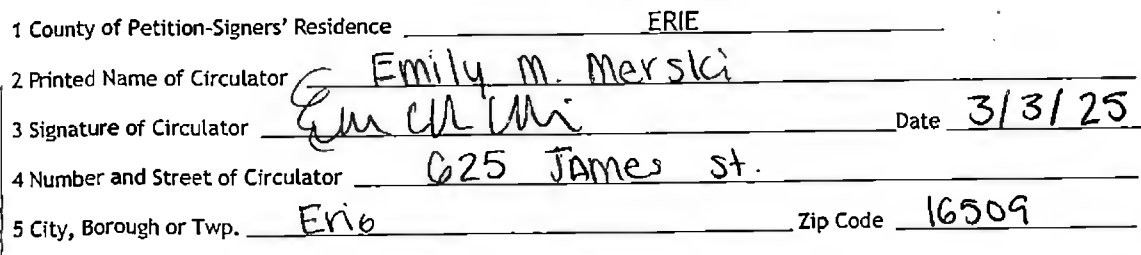 1 County of Petition-Signers' Residence ERIE
2 Printed Name of Circulator Emily M. Merski
3 Signature of Circulator Date 3/3/25
4 Number and Street of Circulator 625 JAmes St.
5 City, Borough or Twp. Erie Zip Code 16509